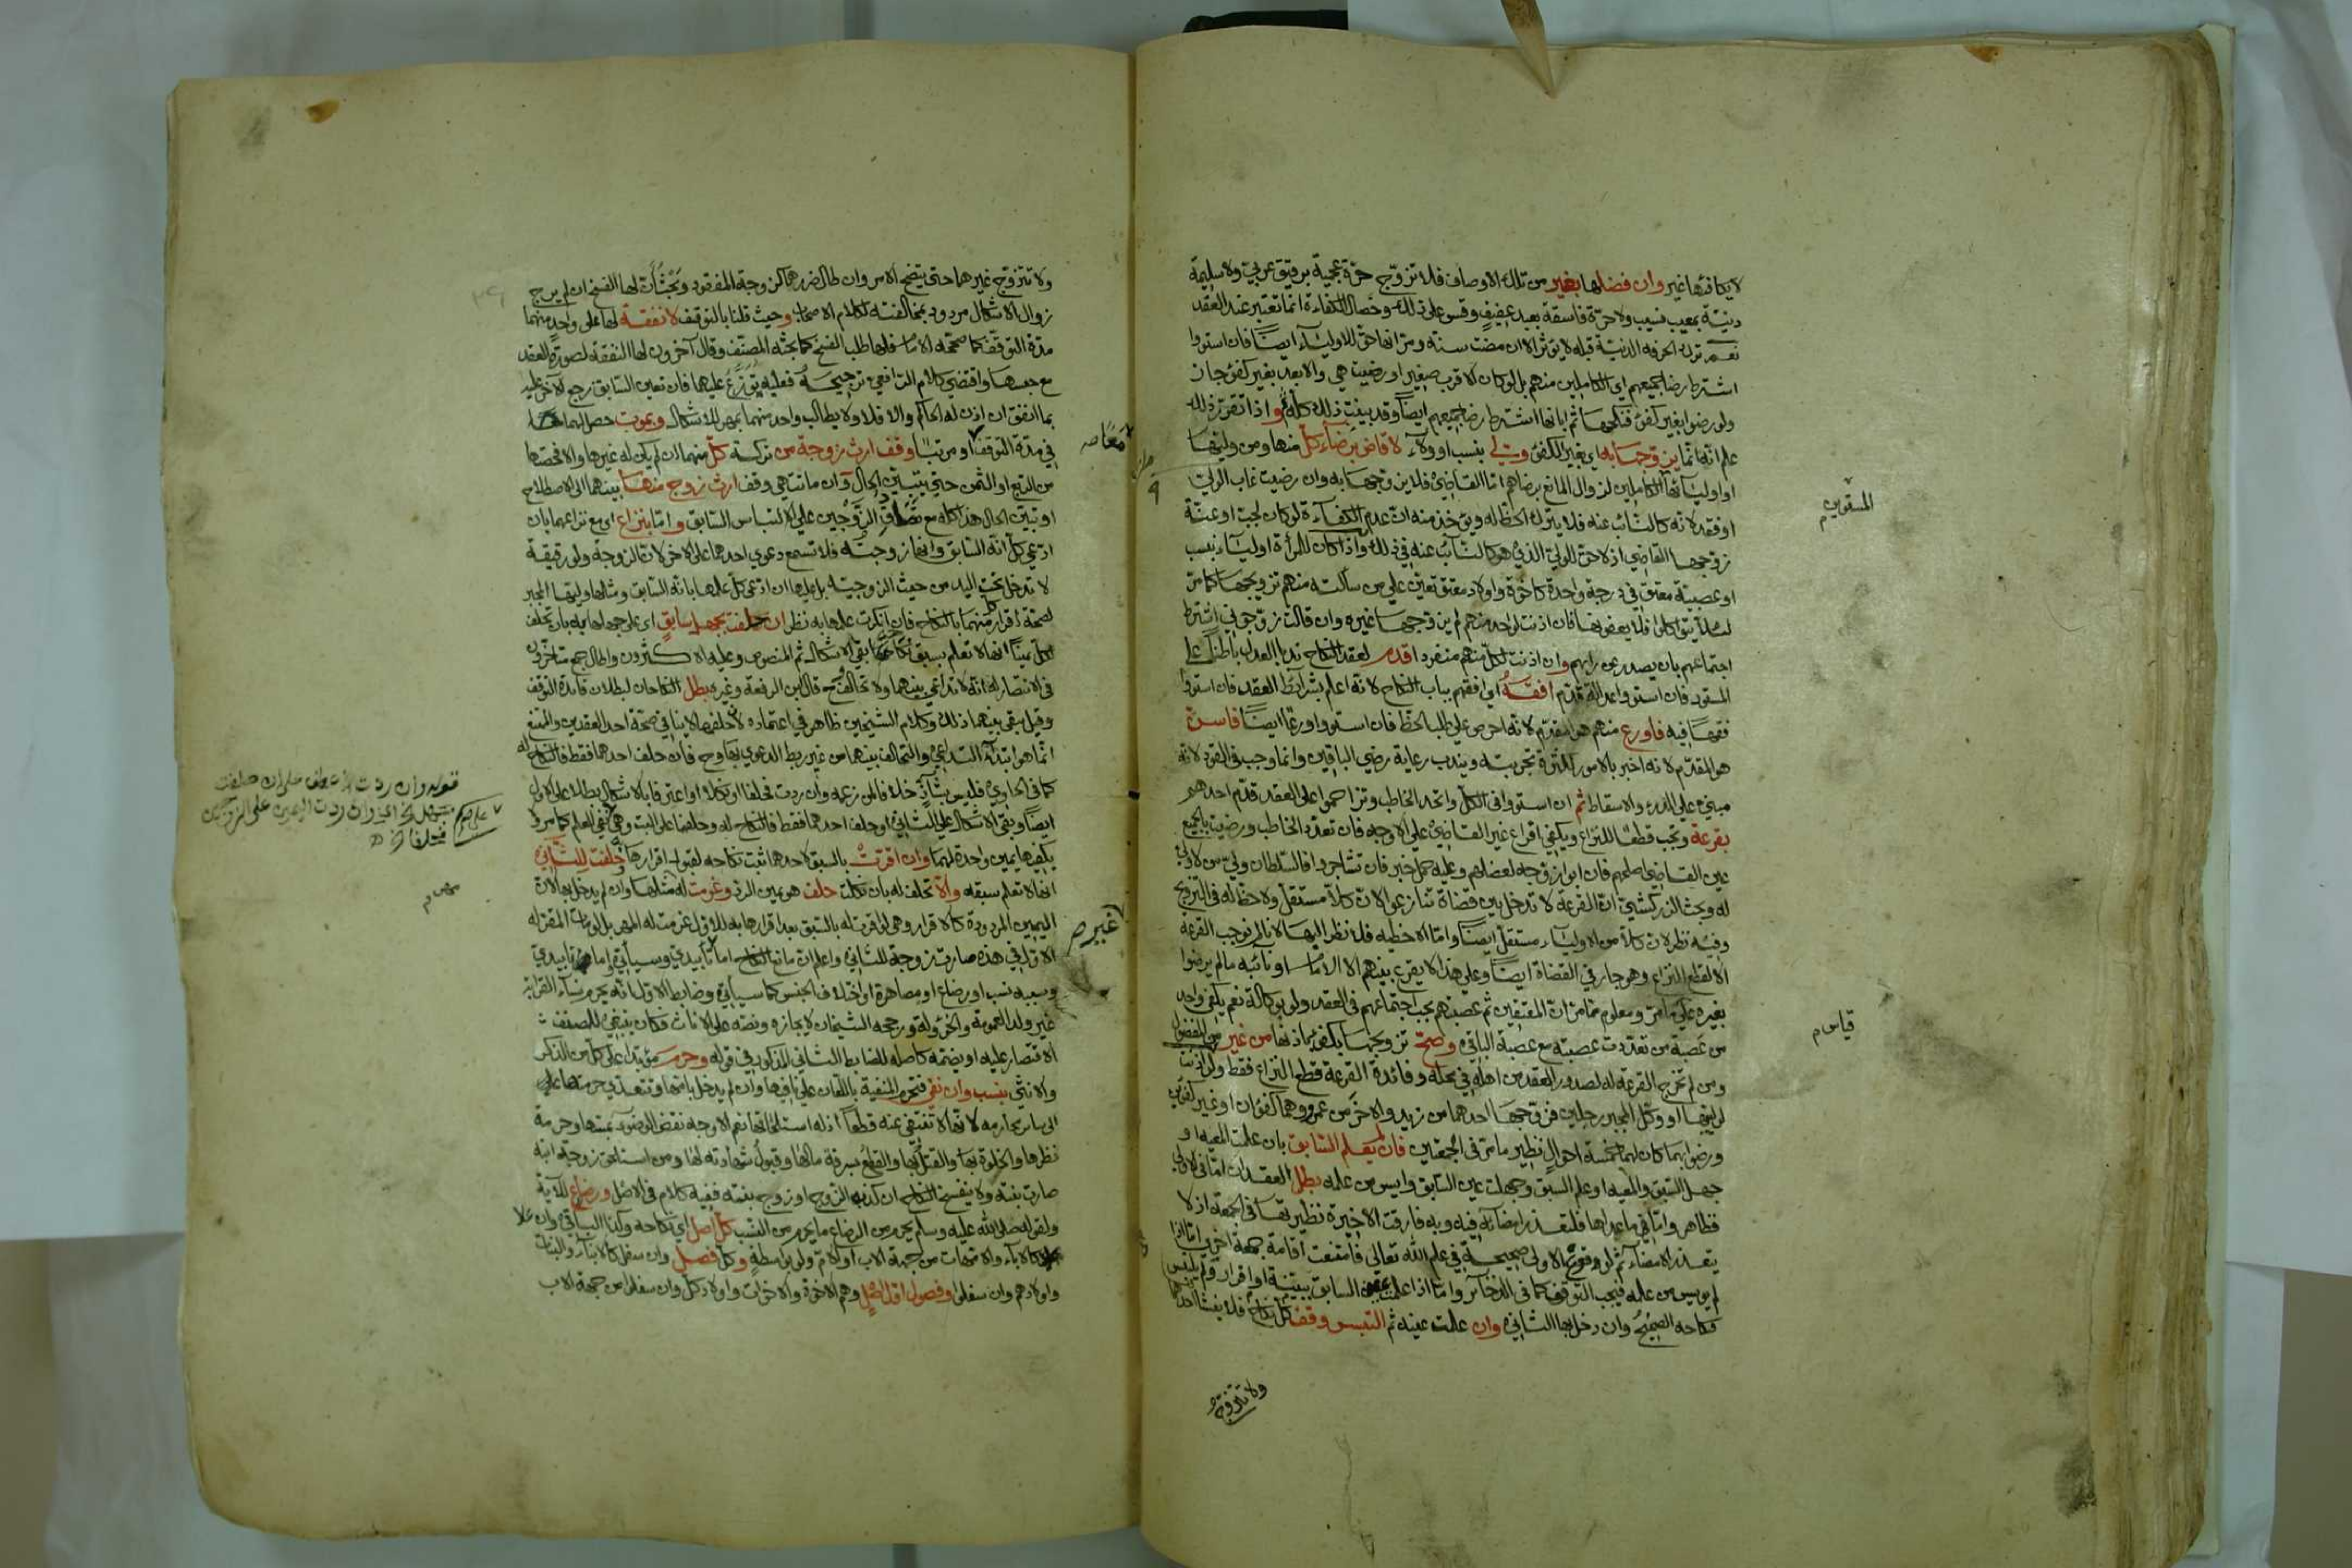 لا يكافئها غير وان فضلها بغير من تلك الاوصاف فلا تزوج حرة عجمية برقيق عربي ولا سليمة
دنيئة بمعيب نسيب ولا حرة فاسقة بعبد عفيف وقس على ذلك وخصال الكفاءة انما تعتبر عند العقد
نعم ترك الحرفه الدنيئة قبله لا يؤثر الا ان مضت سنة ومر انها حق للاولياء ايضا فان استووا
اشترط رضا جميعهم اي الكاملين منهم بل لو كان الاقرب صغيرا ورضيت هي والابعد بغير كفئ جاز
ولو رضوا بغير كفئ فنكحها ثم ابانها اشترط رضا جميعهم ايضا وقد بينت ذلك كله واذا تقرر ذلك
علم انه انما يزوجها به اي بغير الكفئ ولي بنسب او ولاء لا قاض برضاء كل منها ومن وليها
او اوليائها الكاملين لزوال المانع برضاهم اما القاضي فلا يزوجها به وان رضيت غاب الولي
او فقد لانه كالنائب عنه فلا يترك الحظ له ويؤخذ منه ان عدم الكفاءة لو كان لجب او عنة
زوجها القاضي اذ لا حق للولي الذي هو كالنائب عنه في ذلك واذا كان للمرأة اولياء بنسب
او عصبة معتق في درجة واحدة كاخوة واولاد معتق تعين على من سألته منهم تزويجها كما مر
لئلا يتواكلوا فلا يعضوبها فان اذنت لواحد منهم لم يزوجها غيره وان قالت زوجوني اشترط
اجتماعهم بان يصدر عن رايهم وان اذنت لكل منهم منفردا قدم لعقد النكاح ندبا العدل باطنا على
المستور فان استووا عدالة قدم افقه اي افقههم بباب النكاح لانه اعلم بشرائط العقد فان استووا
فقها فيه فاورع منهم هو المقدم لانه احرص على طلب الحظ فان استووا ورعا ايضا فاسن
هو المقدم لانه اخبر بالامور لكثرة تجربته ويندب رعاية رضي الباقين وانما وجب في القود لانه
مبني على الدرء والاسقاط ثم ان استووا في الكل واتحد الخاطب وتزاحموا على العقد قدم احدهم
بقرعة وتجب قطعا للنزاع ويكفي اقراع غير القاضي على الاوجه فان تعدد الخاطب ورضيت بالجميع
عين القاضي اصلحهم فان ابوا زوجه لعضلهم وعليه حمل خبر فان تشاجروا فالسلطان ولي من لا ولي
له وبحث الزركشي ان القرعة لا تدخل بين قضاة تنازعوا لان كلا مستقل ولا حظ له في التزويج
وفيه نظر لان كلا من الاولياء مستقل ايضا واما الاحظيه فلا نظر اليها لانا لم نوجب القرعة
الا لقطع النزاع وهو جار في القضاة ايضا وعلى هذا لا يقرع بينهم الا الامام او نائبه ما لم يرضوا
بغيره على ما مر ومعلوم مما مر ان المعتقين ثم عصبتهم يجب اجتماعهم في العقد ولو بوكالة نعم يكفي واحد
من عصبة من تعددت عصبته مع عصبة الباقي وصح تزويجها بكفئ باذنها من غير المفضول
ومن لم تخرج القرعة له لصدور العقد من اهله في محله وفائدة القرعة قطع النزاع فقط ولو اذنت
لوليها او وكل المجبر رجلين فزوجها احدهما من زيد والاخر من عمرو وهما كفؤان او غير كفؤين
ورضوا بهما كان لهما خمسة احوال نظير ما مر في الجمعتين فان لم يعلم السابق بان علمت المعيه او
جهل السبق والمعيه او علم السبق وجهلت عين السابق وايس من علمه بطل العقدان اما في الاولى
فظاهر واما في ما عداها فلتعذر امضائه فيه وبه فارقت الاخيرة نظيرتها في الجمعة اذ لا
يتعذر الامضاء ثم لوقوع الاولى صحيحة في علم الله تعالى فامتنعت اقامة جمعة اخرى اما اذا
لم يويس من علمه فيجب التوقف كما في الذخائر واما اذا علمت عين السابق ببينة او اقرار ولم يلتبس
فنكاحه الصحيح وان دخل بها الثاني وان علمت عينه ثم التبس وقف كل نكاح فلا يغشاها احدهما
ولا تتزوج
المستورين م
قياس م
ولا تتزوج غيرهما حتى يتضح الامر وان طال ضررهما كزوجة المفقود وبحث ان لها الفسخ ان لم يرج
زوال الاشكال مردود بمخالفته لكلام الاصحاب وحيث قلنا بالتوقف لا نفقة لها على واحد منهما
مدة التوقف كما صححه الامام فلها طلب الفسخ كما بحثه المصنف وقال آخرون لها النفقة لصورة العقد
مع حبسها واقتضى كلام الرافعي ترجيحه فعليه توزع عليهما فان تعين السابق رجع الآخر عليه
بما انفق ان اذن له الحاكم والا فلا ولا يطالب واحد منهما بمهر للاشكال وبموت حصل لهما
في مدة التوقف او مرتبا وقف ارث زوجة من تركة كل منهما ان لم يكن له غيرها والا فحصتها
من الربع او الثمن حتى يتبين الحال وان ماتت هي وقف ارث زوج منها بينهما الى الاصطلاح
او تبين الحال هذا كله مع تصادق الزوجين على الالتباس السابق واما بنزاع اي مع نزاعهما بان
ادعى كل انه السابق وانها زوجته فلا تسمع دعوى احدهما على الاخر لان الزوجة ولو رقيقة
لا تدخل تحت اليد من حيث الزوجيه بل عليها ان ادعى كل علمها بانه السابق ومثلها وليها المجبر
لصحة اقرار كل منهما بالنكاح فان انكرت علمها به نظر ان حلفت بجهل سابق اي على جهلها به بان تحلف
لكل يمينا انها لا تعلم بسبق نكاحه بقي الاشكال ثم المنصوص وعليه الاكثرون واطال جمع متاخرون
في الانتصار له انه لا تداعي بينهما ولا تحالف قال ابن الرفعة وغيره بطل النكاحان لبطلان فائدة التوقف
وقيل يبقى بينهما ذلك وكلام الشيخين ظاهر في اعتماده لان حلفها لا ينافي صحة احد العقدين والممتنع
انما هو ابتداء التداعي والتحالف بينهما من غير ربط الدعوى بها وح فان حلف احدهما فقط فالنكاح له
كما في الحاوي فليس بشاذ خلافا لمن زعمه وان ردت فحلفا او نكلا او اعترفا بالاشكال بطلا على الاول
ايضا وبقي الاشكال على الثاني او حلف احدهما فقط فالنكاح له وحلفهما على البت وهي على نفي العلم كما مر ولا
يكفيها يمين واحدة لهما وان اقرت بالسبق لاحدهما ثبت نكاحه لقبول اقرارها وحلفت للثاني
انها لا تعلم سبقه والا تحلف له بان نكلت حلف هو يمين الرد وغرمت له مثلها وان لم يدخل بها لان
اليمين المردودة كالاقرار وهي لو اقرت له بالسبق بعد اقرارها به للاول غرمت له المهر بل لو مات المقر له
الاول في هذه صارت زوجة للثاني واعلم ان مانع النكاح اما تأبيدي وسيأتي واما تأبيدي
وسببه نسب او رضاع او مصاهرة او اختلاف الجنس كما سيأتي وضابط الاول انه يحرم نساء القرابة
غير ولد العمومة والخؤولة ورجحه الشيخان لايجازه ونصه على الاناث فكان ينبغي للمصنف
الاقتصار عليه او يضمه كاصله للضابط الثاني المذكور في قوله وحرم مؤبدا على كل من الذكر
والانثى بنسب وان نفي فتحرم المنفية باللعان على نافيها وان لم يدخل بامها وتتعدى حرمتها على
الى سائر محارمه لانها لا تنتفي عنه قطعا اذ له استلحاقها نعم الاوجه نقض الوضوء بمسها وحرمة
نظرها والخلوة بها والقتل بها والقطع بسرقة مالها وقبول شهادته لها ومن استلحق زوجة ابنه
صارت بنته ولا ينفسخ النكاح ان كذبه الزوج او زوج بنته ففيه كلام في الاصل ورضاع للآية
ولقوله صلى الله عليه وسلم يحرم من الرضاع ما يحرم من النسب كل اصل اي نكاحه وكذا الباقي وان علا
كالاباء والامهات من جهة الاب او الام ولو بواسطة وكل فصل وان سفل كالابناء والبنات
واولادهم وان سفلوا وفصول اول اصل وهم الاخوة والاخوات واولاد كل وان سفلوا من جهة الاب
معا صح
غير صح
قوله وان ردت الخ عطف على ان حلفت
بجهل الخ اي وان ردت اليمين على الزوجين
فحلفا الخ
مهر م